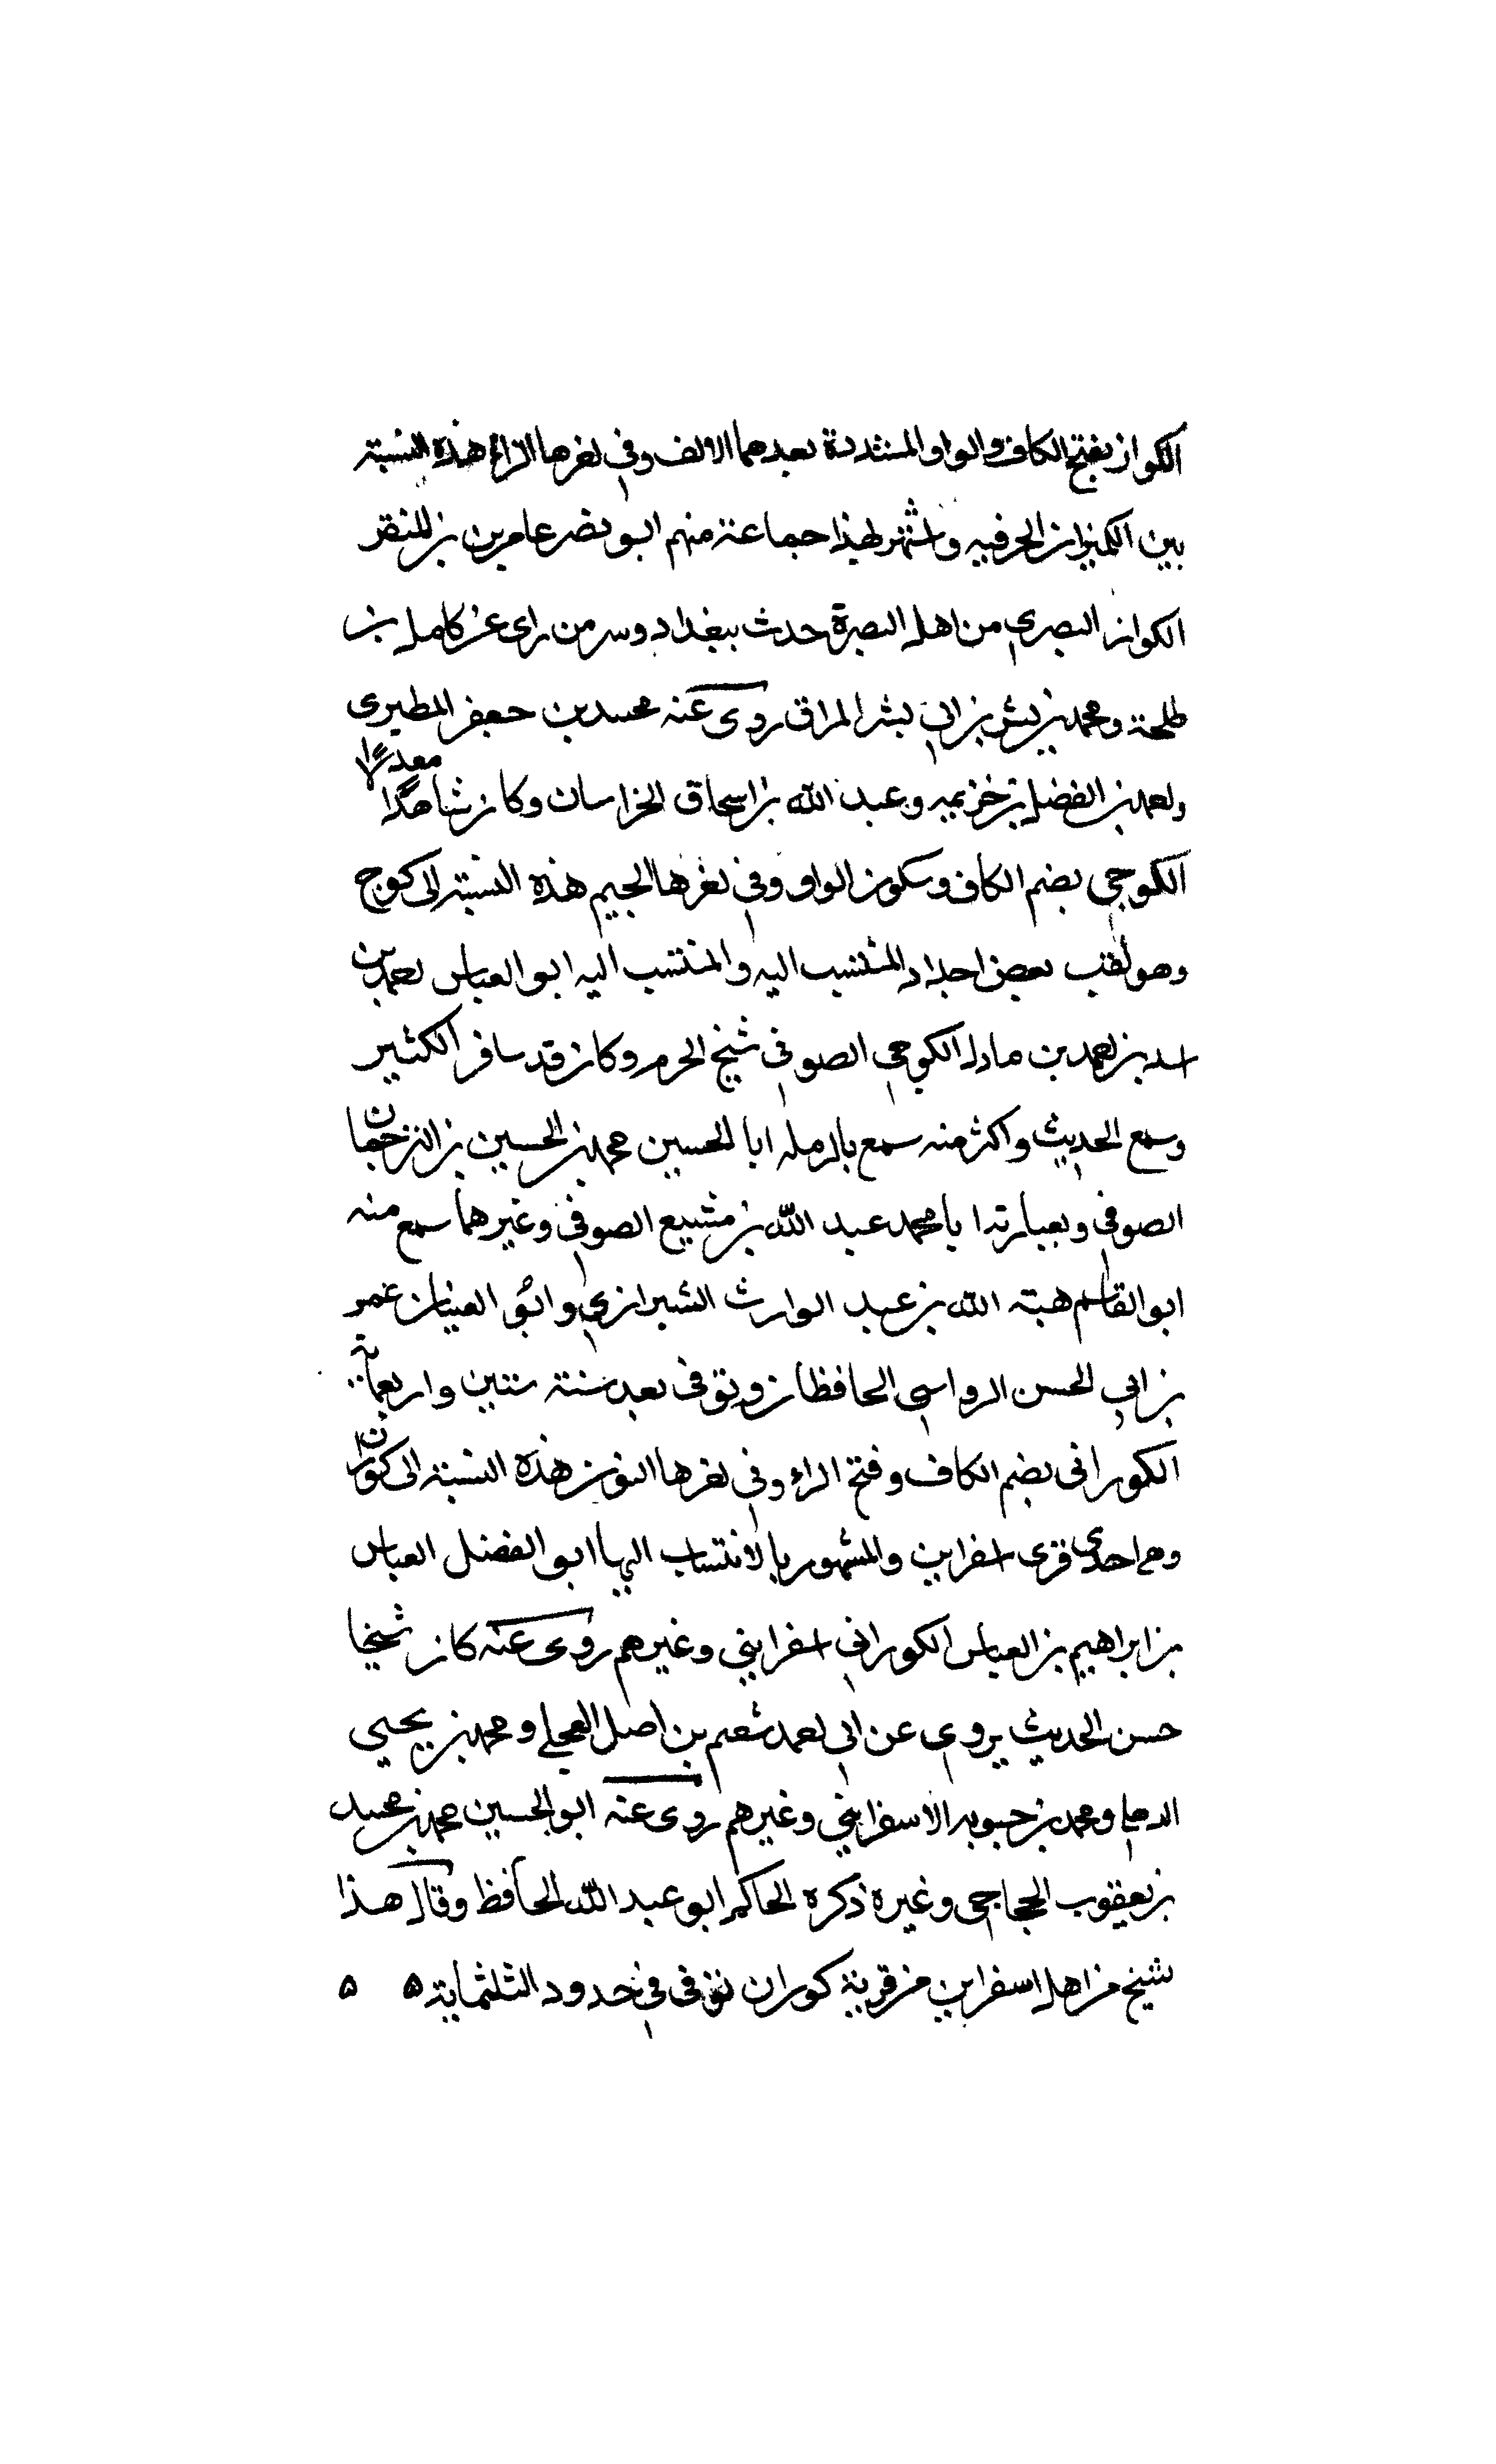 الكواز بفتح الكاف والواو المشددة بعدهما الالف وفي اخرها الزاء هذه النسبة
بين الكيزان الحرفيه واشتهر بهذا جماعة منهم ابو نصر عامر بن بن
الكواز البصري من اهل البصرة حدث ببغداد وسر من راى عن كامل بن
طلحة ومحمد بن بشر بن ابي بشر المزلق روى عنه محمد بن جعفر المطيري
واحمد بن الفضل بن خزيمه وعبد الله بن اسحاق الخراسان وكان شاهدا معدلا
الكوجي بضم الكاف وسكون الواو وفي اخرها الجيم هذه النسبة الى كوج
وهو لقب بعض اجداد المنتسب اليه والمنتسب اليه ابو العباس احمد بن
اسد بن احمد بن مادل الكوجي الصوفي شيخ الحرم وكان قد سافر الكثير
وسمع الحديث واكثر منه سمع بالرمله ابا الحسين محمد بن الحسين بن الترجمان
الصوفي ابا محمد عبد الله بن الصوفي وغيرهما سمع منه
ابو القاسم هبة الله بن عبد الوارث الشيرازي وابو الفتيان عمر
بن ابي الحسن الرواسي الحافظان وتوفي بعد سنة ستين واربعمائة
الكوراني بضم الكاف وفتح الراء وفي اخرها النون هذه النسبة الى كوران
وهي احدى قرى اسفراين والمشهور بالانتساب اليها ابو الفضل العباس
بن ابراهيم بن العباس الكوراني اسفرايني وغيرهم روى عنه كان شيخا
حسن الحديث يروى عن ابي احمد شعيم بن اصيل العجلي ومحمد بن يحيى
ومحمد بن حيويه الاسفرايني وغيرهم روى عنه ابو الحسين محمد بن محمد
بن يعقوب الحجاجي وغيره ذكره الحاكم ابو عبد الله الحافظ وقال هذا
شيخ من اهل اسفراين من قرية كوران توفي في حدود الثلثماية ۵ ۵